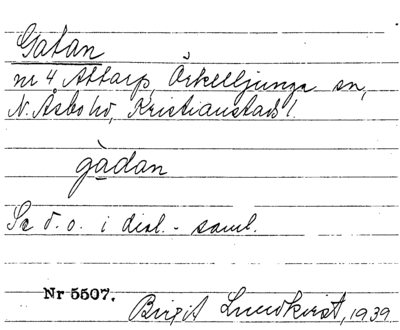 Gatan
nr 4 Attarp, Örkelljunga sn,
N. Åsbo hd, Kristianstads l.
gàdan
Se d. o. i dial.- saml.
Nr 5507.
Birgit Lundkvist, 1939.